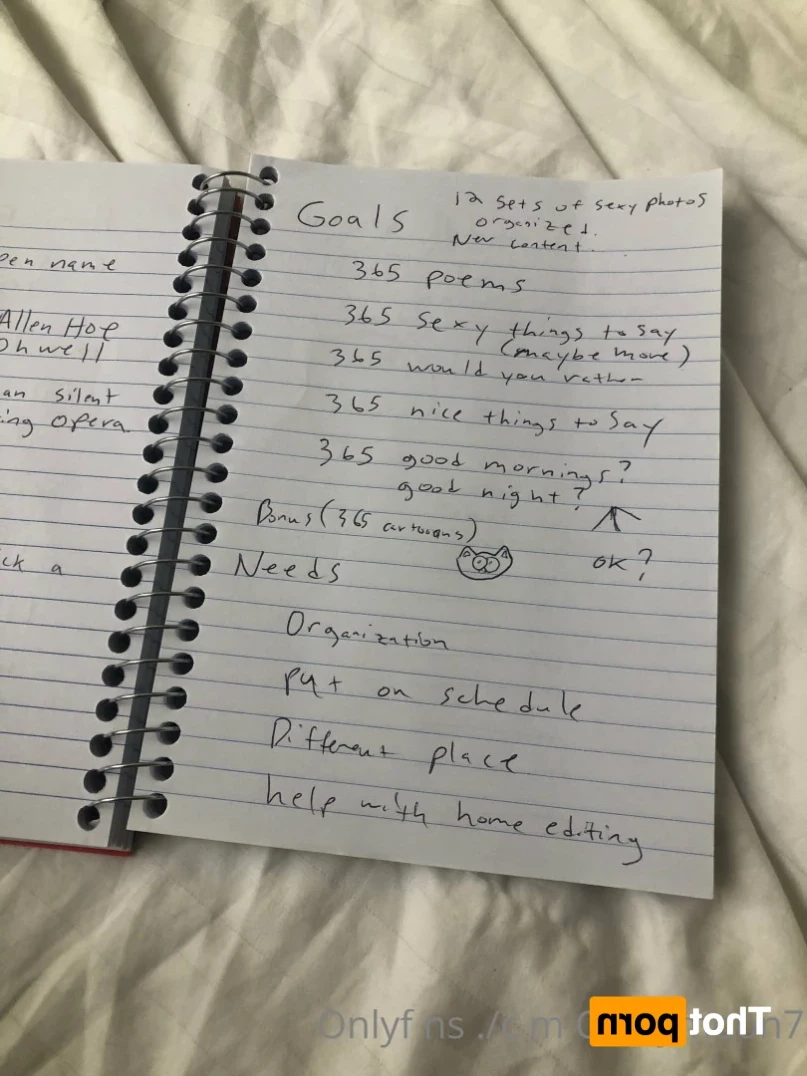 pen name
Allen Hoe
Oh well
an silent
ing opera
ck a
12 sets of sexy photos
organized.
New content.
Goals
365 poems
365 sexy things to say
(maybe more)
365 would you rather
365 nice things to say
365 good mornings?
good night?
Bonus (365 cartoons)
OK?
Needs
Organization
put on schedule
Different place
help with home editing
Thot porn